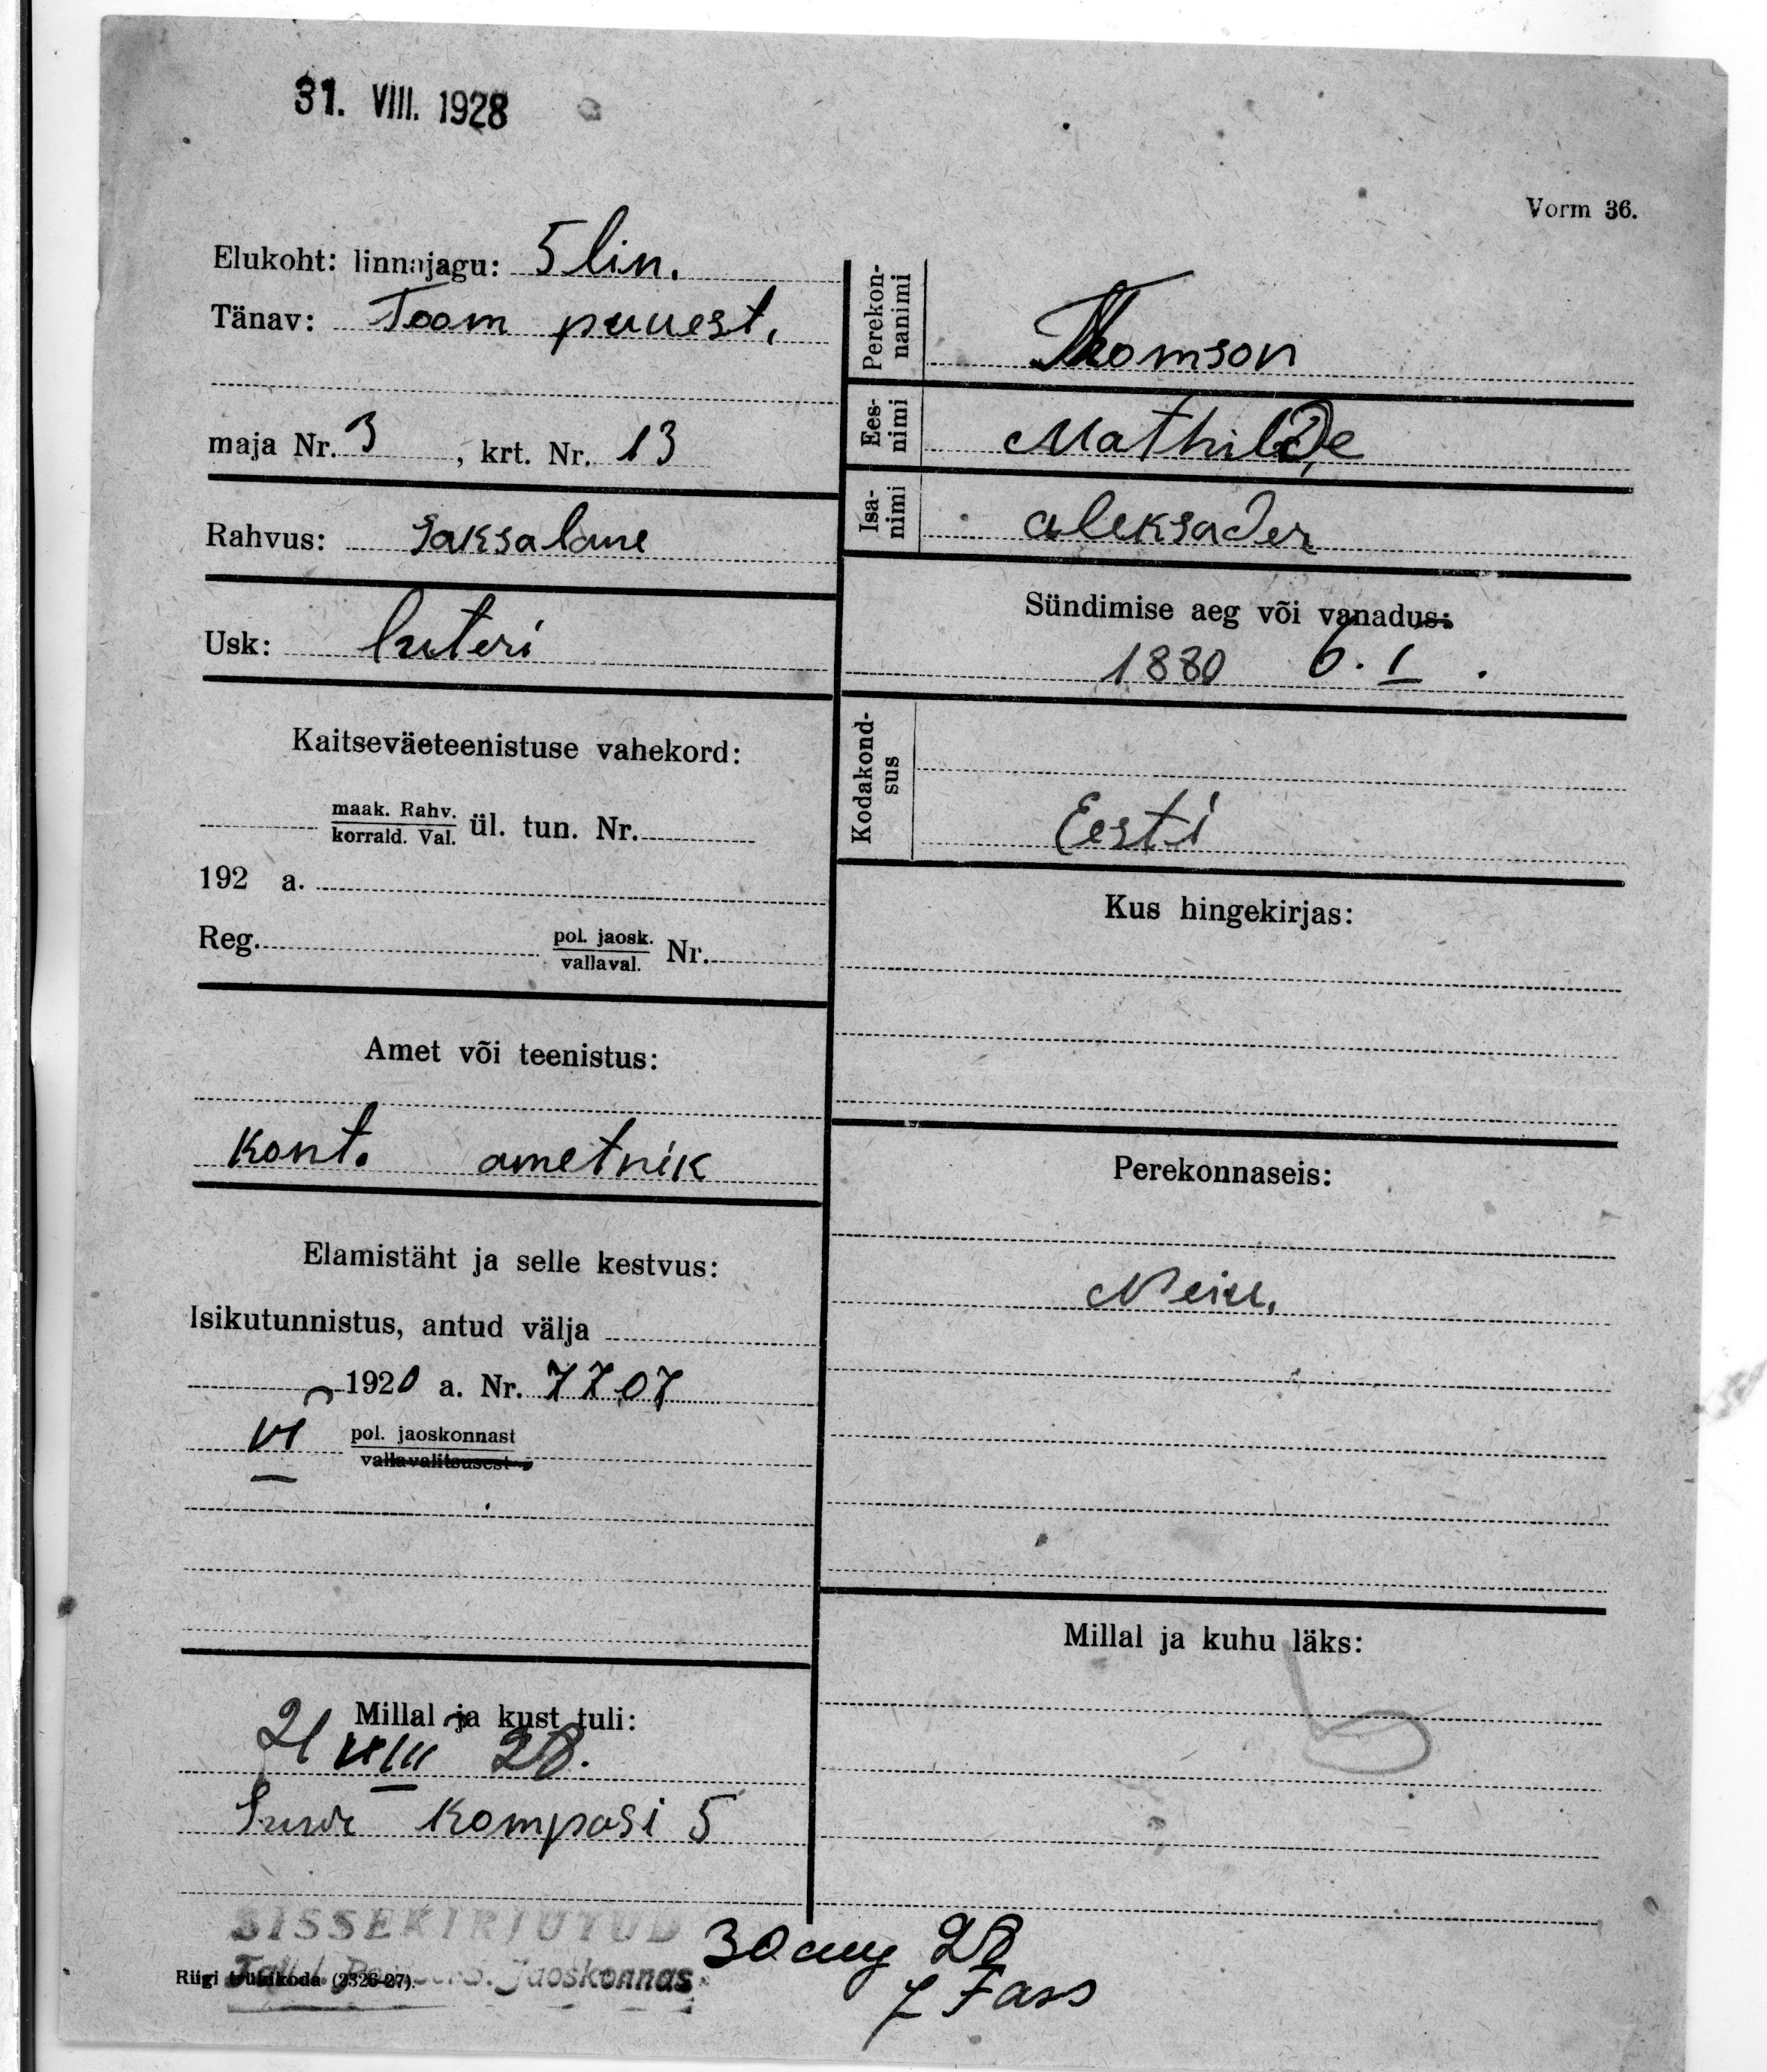 31. VIII. 1928
Vorm 36.
Elukoht: linnajagu: 5 lin.
Tänav: Toom puuest,
maja Nr. 3, krt. Nr. 13
Rahvus: saksalane
Usk: luteri
Kaitseväeteenistuse vahekord:
maak. Rahv.
korrald. Val. ül. tun. Nr.
192 a.
Reg. pol. jaosk.
vallaval. Nr.
Amet või teenistus:
kont. ametnik
Elamistäht ja selle kestvus:
Isikutunnistus, antud välja
1920 a. Nr. 7707
VI pol. jaoskonnast
vallavalitsusest
Millal ja kust tuli:
21 VIII 28.
Kompasi 5
Perekon-
nanimi
Thomson
Ees-
nimi
Mathilde
Isa-
nimi
aleksader
Sündimise aeg või vanadus:
1880 6. I.
Kodakond-
sus
Eesti
Kus hingekirjas:
Perekonnaseis:
Neiu,
Millal ja kuhu läks:
SISSEKIRJUTUD
Jaoskonnas
Riigi trükikoda (2326-27).
30 aug 28